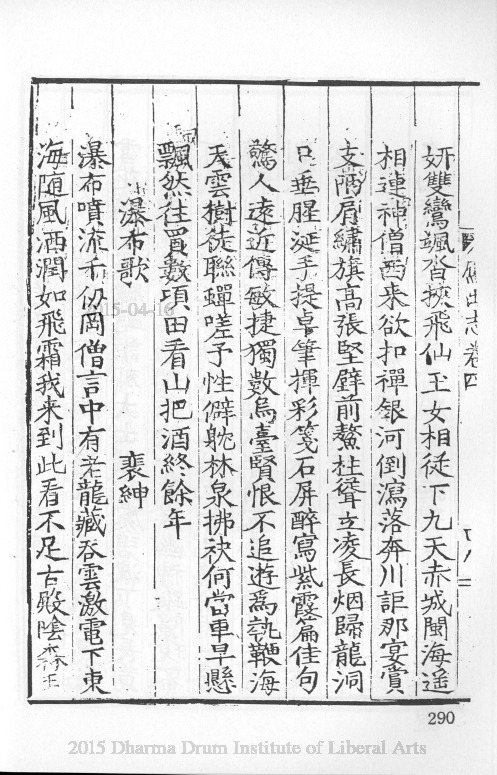 妍雙鸞颯沓挾飛仙玉女相從下九天赤城閩海遥
相連神僧西来欲扣禪銀河倒瀉落奔川詎那宴賞
支隣肩繡旗高張堅壁前鰲柱聳立凌長烟歸龍洞
口垂腥涎手提卓筆揮彩箋石屏醉寫紫霞篇佳句
驚人遠近傳敏捷獨數烏臺賢恨不追遊爲執鞭海
天雲樹徒聯蟬嗟予性僻躭林泉拂袂何當車早懸
飄然往買數頃田看山把酒終餘年
瀑布歌 裴紳
瀑布噴流千仞岡僧言中有老龍藏吞雲激電下東
海随風洒潤如飛霜我来到此看不足古殿陰森玉
志卷四
290
2015-04-16
2015 Dharma Drum Institute of Liberal Arts